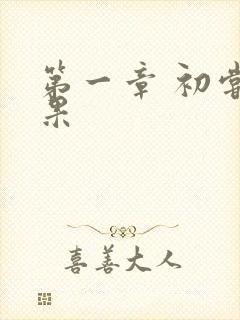 第一章 初尝
果
喜善大人